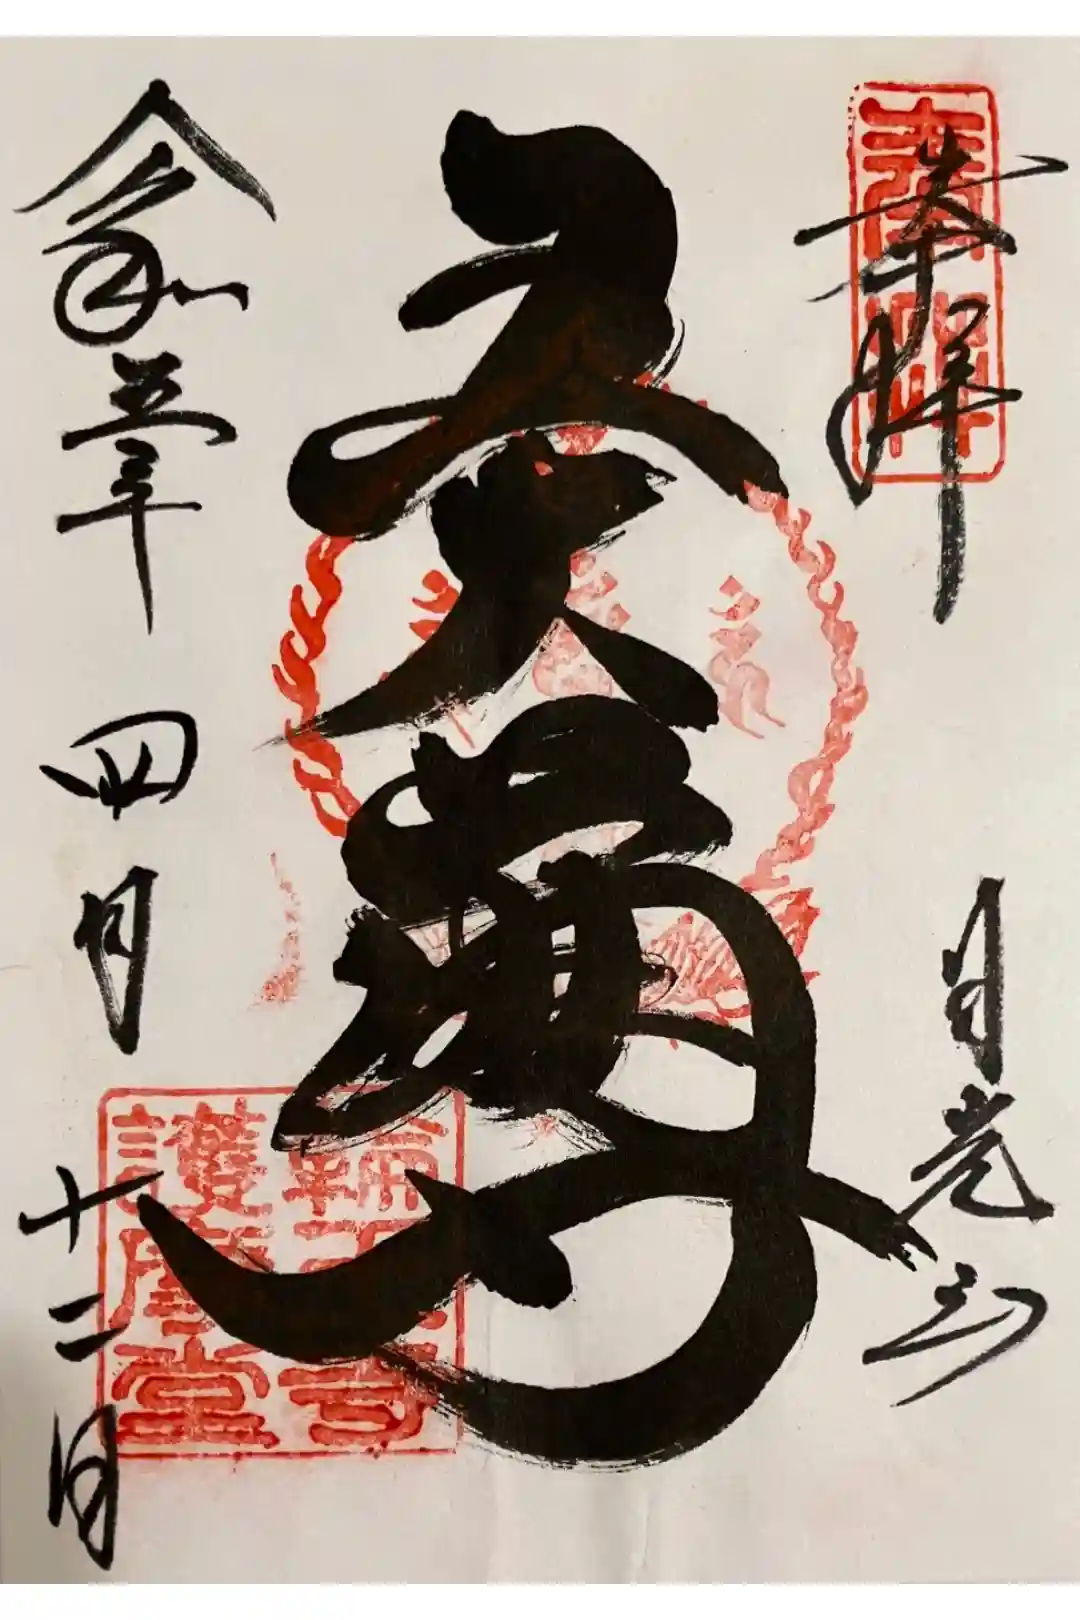 奉拝
奉拝
日光山
五大尊
輪王寺
護摩堂
令和五年四月十二日